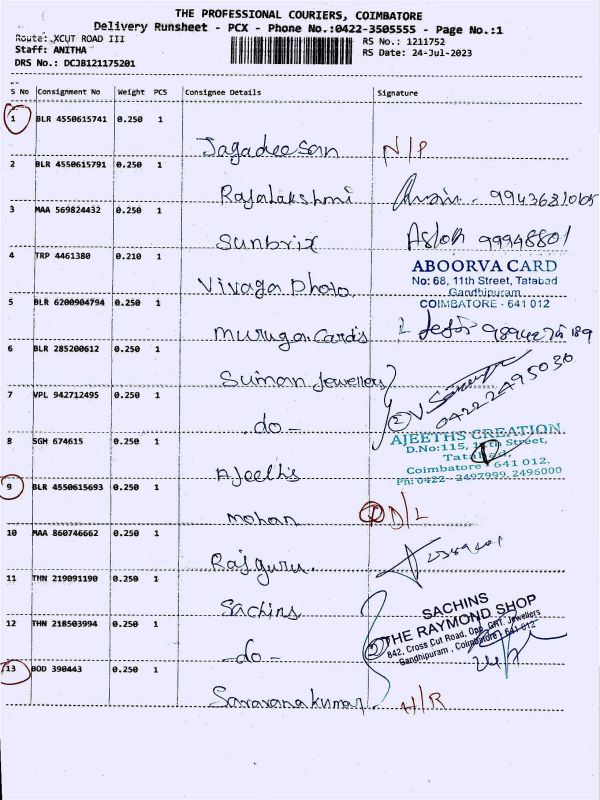 THE PROFESSIONAL COURIERS, COIMBATORE
Delivery Runsheet - PCX - Phone No.:0422-3505555 - Page No.:1
Route: XCUT ROAD III
RS No.: 1211752
Staff: ANITHA
RS Date: 24-Jul-2023
DRS No.: DCJB121175201
S No Consignment No Weight PCS Consignee Details Signature
1 BLR 4550615741 0.250 1
Jagadeesan N/P
2 BLR 4550615791 0.250 1
Rajalakshmi
3 MAA 569824432 0.250 1
Sunbrix Aslok 99948801
4 TRP 4461380 0.210 1
ABOORVA CARD
No: 68, 11th Street, Tatabad
Gandhipuram
COIMBATORE - 641 012
Vinaga Photo
5 BLR 6200904794 0.250 1
Muruga Cards
6 BLR 285200612 0.250 1
Suman Jewellers
2 04222495030
7 VPL 942712495 0.250 1
-do-
AJEETHS CREATION
D.No:115, Street,
Tatabad,
Coimbatore - 641 012.
Ph: 0422 - 2497999, 2496000
8 SGH 674615 0.250 1
Ajeeths
9 BLR 4550615693 0.250 1
Mohan D/L
10 MAA 860746662 0.250 1
Rajguru
11 THN 219091190 0.250 1
Sachins
SACHINS
THE RAYMOND SHOP
842, Cross Cut Road, Opp. GRT. Jewellers
Gandhipuram, Coimbatore - 641 012
12 THN 218503994 0.250 1
-do- 2
13 BOD 390443 0.250 1
Saravanakumar H/R